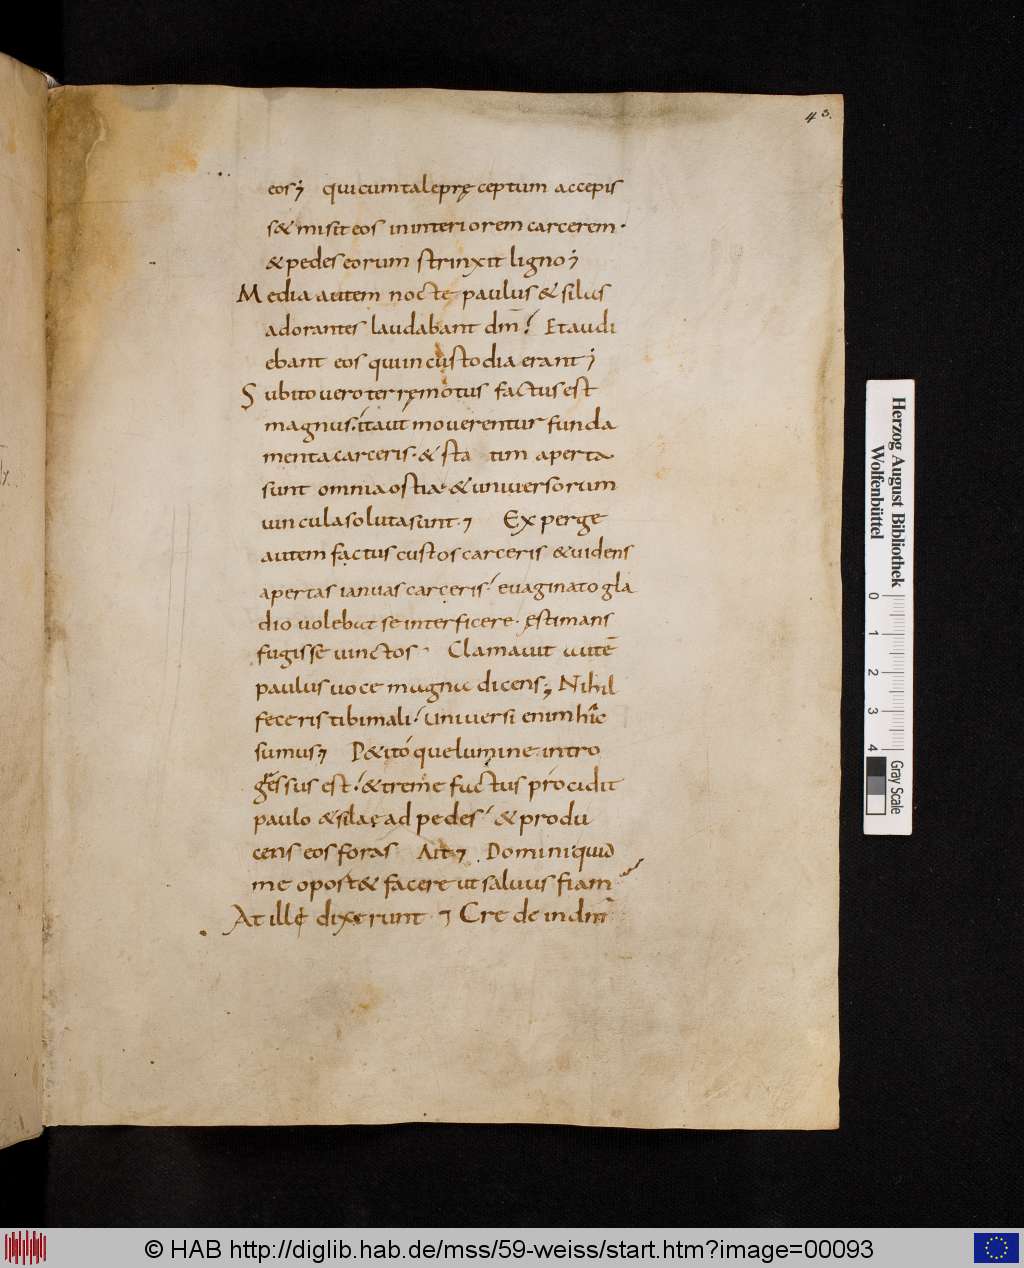 43.
eos; qui cum tale pręceptum accepis
s& misit eos in interiorem carcerem·
& pedes eorum strinxit ligno;
Media autem nocte paulus & silas
adorantes laudabant dm̄; Et audi
ebant eos qui in custodia erant;
Subito vero terręmotus factus est
magnus; ita ut moverentur funda
menta carceris· & sta tim aperta
sunt omnia ostia· & universorum
vincula soluta sunt; Ex perge
autem factus custos carceris & videns
apertas ianuas carceris· evaginato gla
dio volebat se interficere· ęstimans
fugisse vinctos· Clamavit autē
paulus voce magna dicens; Nihil
feceris tibi mali· universi enim hic
sumus; P&ito que lumine intro
gressus est· & treme factus procidit
paulo & silae ad pedes· & produ
cens eos foras Ait; Domini quid
me oport& facere ut salvus fiam
At ille dixerunt; Cre de in dm̄
Herzog August Bibliothek
Wolfenbüttel
0 1 2 3 4
Gray Scale
© HAB http://diglib.hab.de/mss/59-weiss/start.htm?image=00093